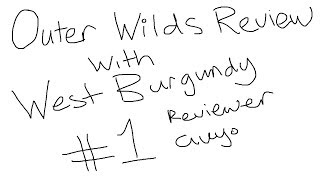 Outer Wilds Review
with
West Burgundy
#1 Reviewer
Guyo